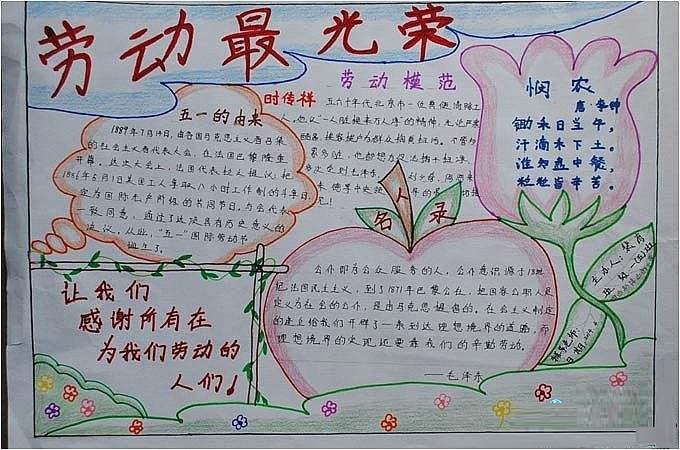 劳动最光荣
五一的由来
1889年7月14日,由各国马克思主义者召集
的社会主义者代表大会,在法国巴黎隆重
开幕。这次大会上,法国代表拉人提议:把
1886年5月1日美国工人争取八小时工作制的斗争日,
定为国际无产阶级的共同节日。与会代表
一致同意,通过了这项具有历史意义的
决议。从此,"五一"国际劳动节
诞生了。
劳动模范
时传祥
五六十年代北京市一位粪便清除工
人。他以"一人脏换来万人净"的精神,无论严寒
悯农
唐·李绅
锄禾日当午,
汗滴禾下土。
谁知盘中餐,
粒粒皆辛苦。
名人录
公仆即为公众服务的人,公仆意识源于18世
纪法国民主主义,到了1871年巴黎公社,把国家公职人员
定义为社会的公仆,是由马克思提倡的,在社会主义制定
的建立给我们开辟了一条到达理想境界的道路,而
理想境界的实现还要靠我们的辛勤劳动。
——毛泽东
让我们
感谢所有在
为我们劳动的
人们!
主办人:
班级: